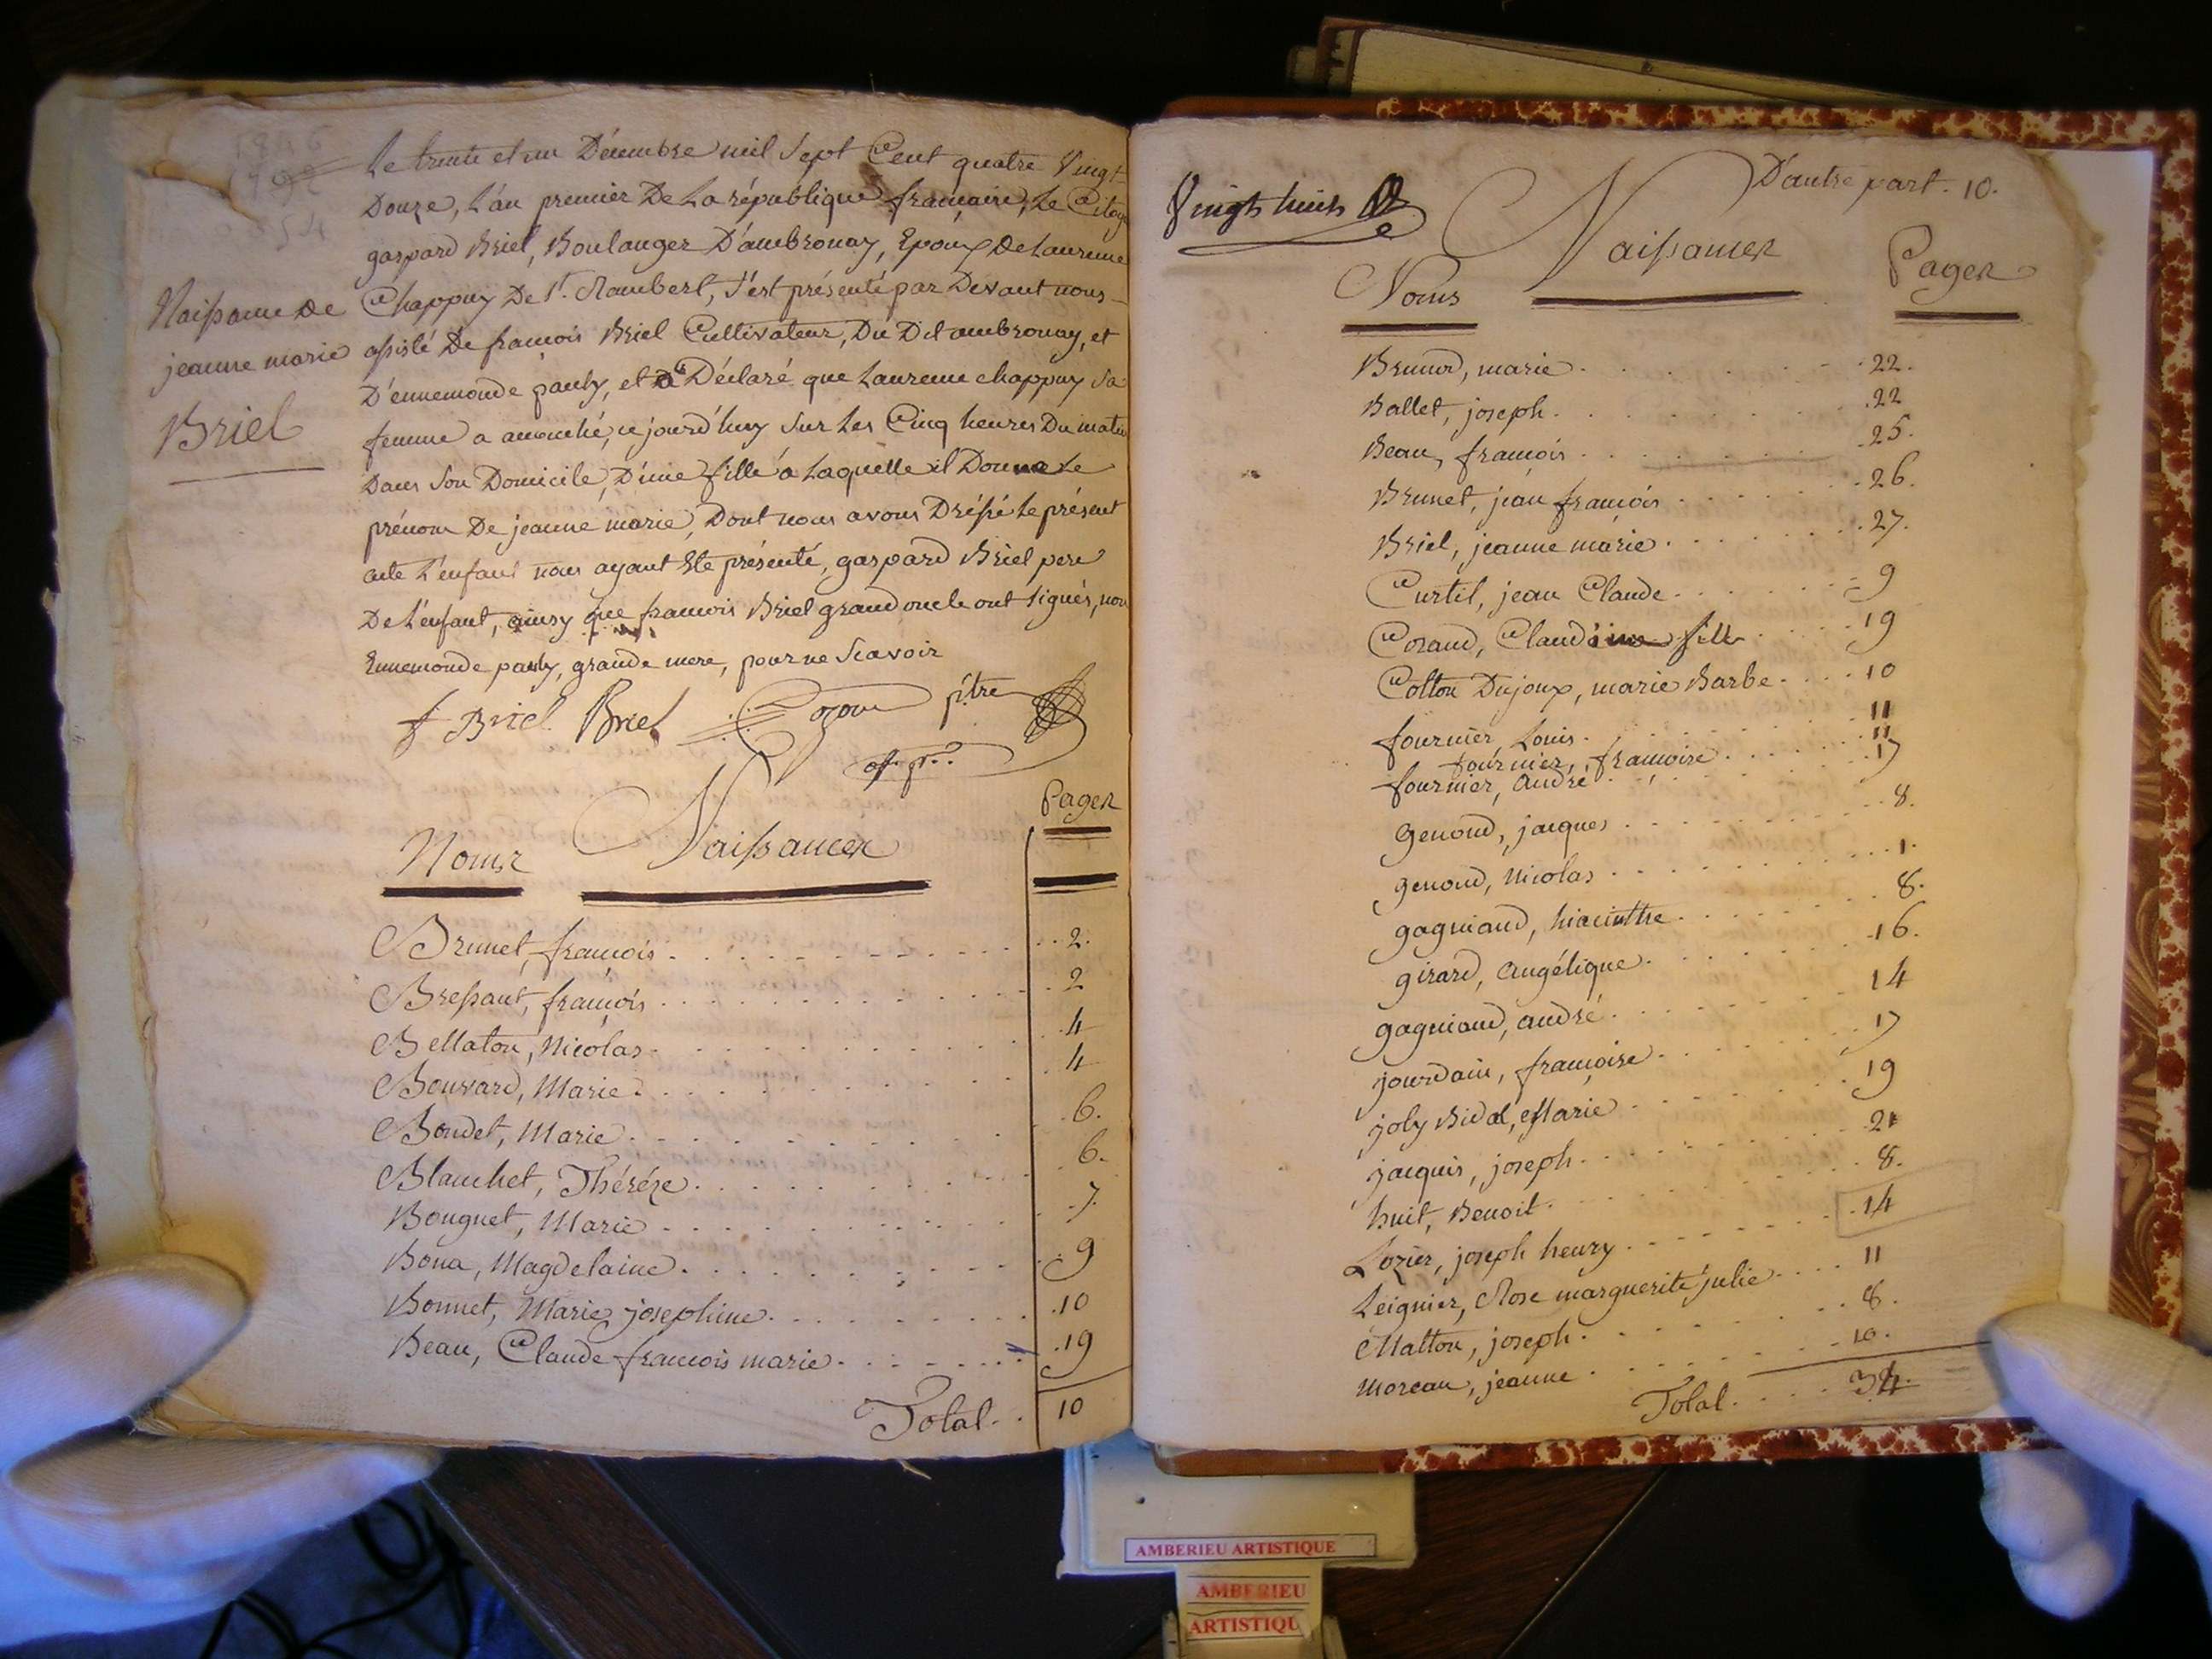 Le trente et un Décembre mil Sept Cent quatre Vingt
Douze, L'an premier De La république française, Le Citoyen
gaspard Briel, Boulanger D'ambronay, Epoux De Laurence
Chappuy De St. Rambert, s'est présenté par Devant nous
assisté De françois Briel Cultivateur, Du Dit ambronay, et
D'ennemonde pauly, et a Déclaré que Laurence chappuy Sa
femme a accouché, ce jourd'huy Sur Les Cinq heures Du matin
Dans Son Domicile, D'une fille a Laquelle il Donne Le
prénom De jeanne marie, Dont nous avons Dréssé Le présent
acte L'enfant nous ayant Eté présenté, gaspard Briel pere
De L'enfant, ainsy que francois Briel grand oncle ont signés, non
Ennemonde pauly, grande mere, pour ne Scavoir
Naissance De
jeanne marie
Briel
f Briel Briel Cozon ptre
of. p..
Noms Naissances Pages
Brunet, françois 2.
Bressant, françois 2
Bellaton, Nicolas 4
Bouvard, Marie 4
Boudet, Marie 6.
Blanchet, Théréze 6.
Bouguet, Marie 7.
Bona, Magdelaine 9
Bonnet, Marie josephine 10
Beau, Claude francois marie 19
Total 10
Vingt huit
D'autre part. 10.
Noms Naissances Pages
Brunod, marie 22.
Ballet, joseph 22
Beau, françois 25.
Brunet, jean françois 26.
Briel, jeanne marie 27.
Curtil, jean Claude 9
Cozand, Claudine fille 19
Cotton Dujoux, marie Barbe 10
fournier, Louis 11
fournier, françoise 11
fournier, André 17
genoud, jacques 8.
genoud, Nicolas 1.
gagniaud, hiacinthe 8.
girard, Angélique 16.
gagniaud, andré 14
jourdain, françoise 17
joly Bidal, Marie 19
jacquis, joseph 21
huit, Benoit 8.
Lozier, joseph henry 14
Leignier, Rose marguerite julie 11
Matton, joseph 8.
Moreau, jeanne 10.
Total 34.
AMBERIEU ARTISTIQUE
AMBERIEU
ARTISTIQU